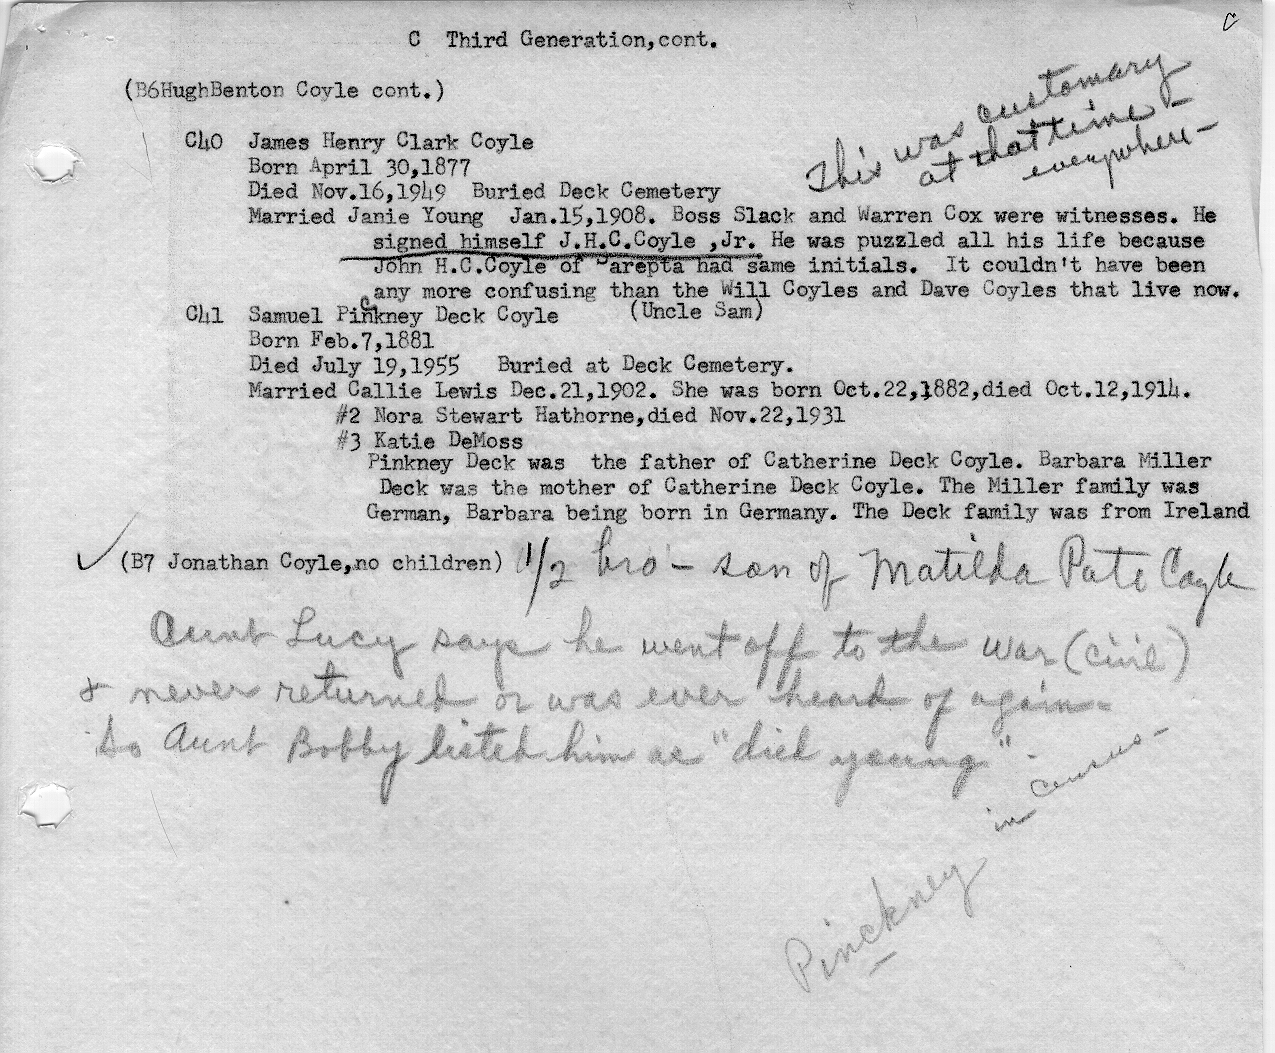 C
C Third Generation,cont.
(B6HughBenton Coyle cont.)
This was customary
at that time -
everywhere -
C40 James Henry Clark Coyle
Born April 30,1877
Died Nov.16,1949 Buried Deck Cemetery
Married Janie Young Jan.15,1908. Boss Slack and Warren Cox were witnesses. He
signed himself J.H.C.Coyle ,Jr. He was puzzled all his life because
John H.C.Coyle of Sarepta had same initials. It couldn't have been
any more confusing than the Will Coyles and Dave Coyles that live now.
C41 Samuel Pinckney Deck Coyle (Uncle Sam)
Born Feb.7,1881
Died July 19,1955 Buried at Deck Cemetery.
Married Callie Lewis Dec.21,1902. She was born Oct.22,1882,died Oct.12,1914.
#2 Nora Stewart Hathorne,died Nov.22,1931
#3 Katie DeMoss
Pinkney Deck was the father of Catherine Deck Coyle. Barbara Miller
Deck was the mother of Catherine Deck Coyle. The Miller family was
German, Barbara being born in Germany. The Deck family was from Ireland
(B7 Jonathan Coyle,no children) 1/2 bro - son of Matilda Pate Coyle
Aunt Lucy says he went off to the war (civil)
& never returned or was ever heard of again -
So Aunt Bobby listed him as "died young" -
Pinckney in Census -